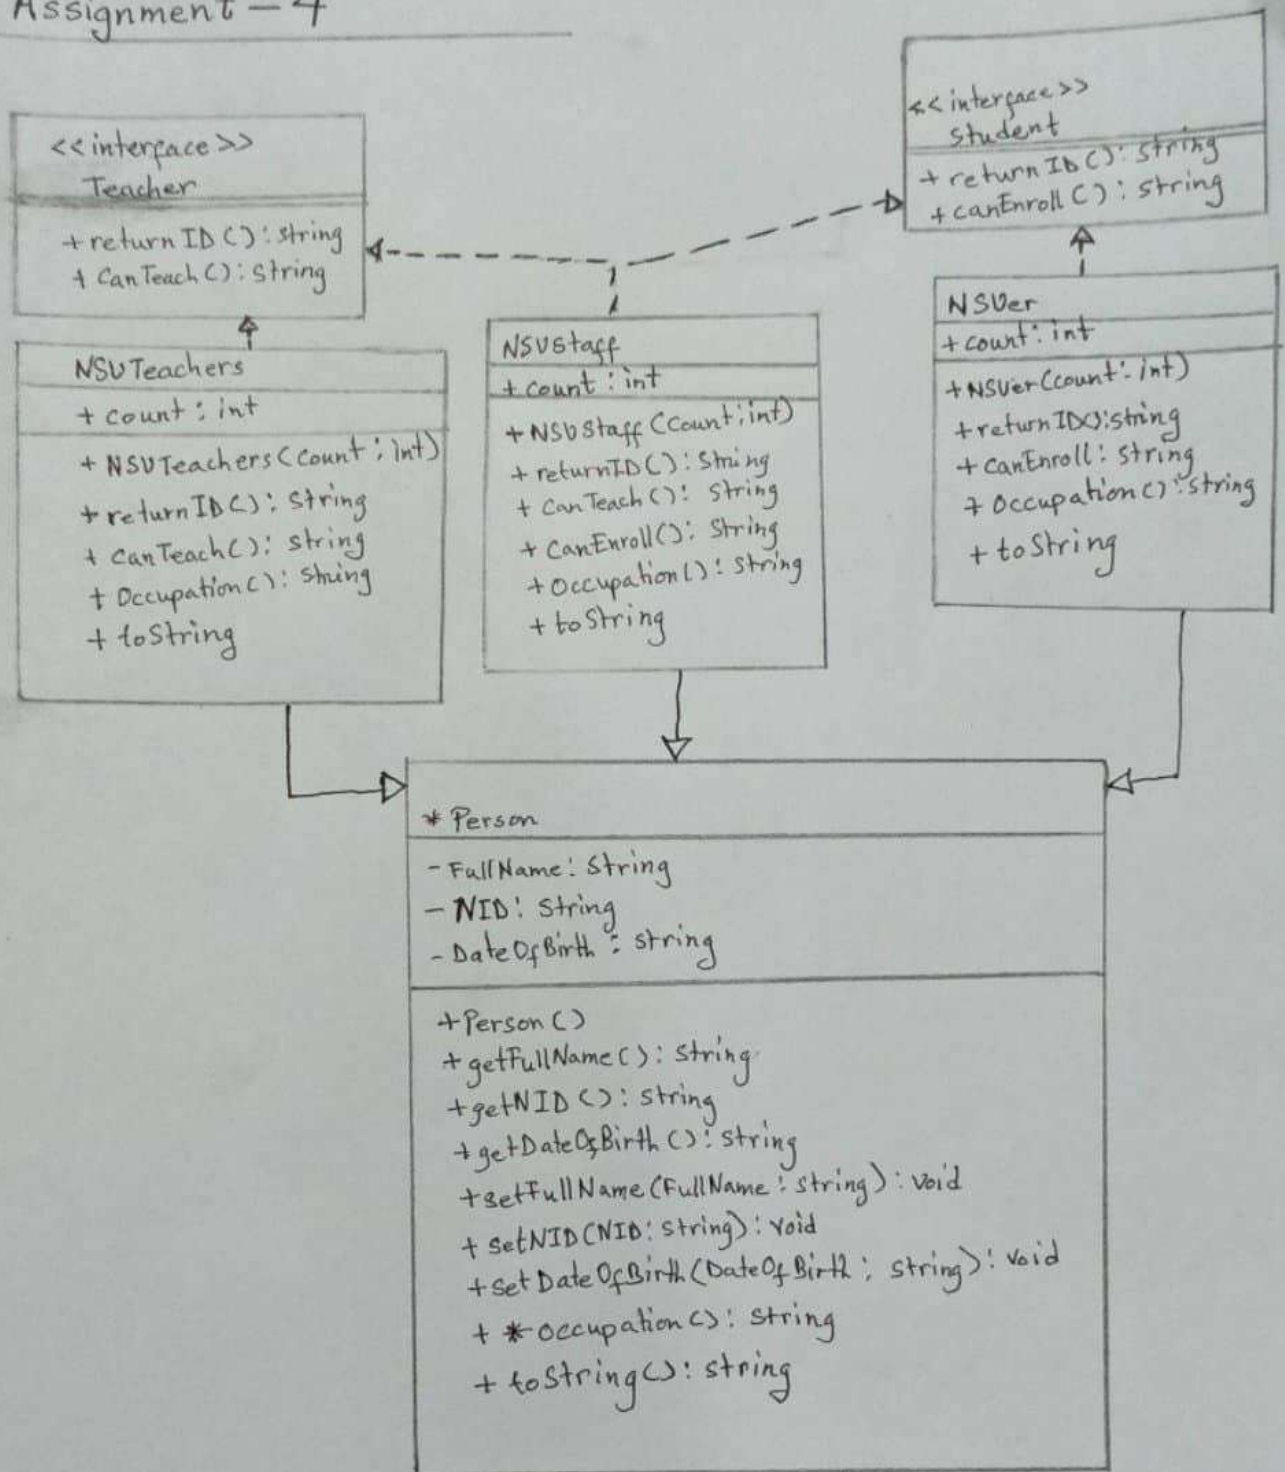 Assignment - 4
<<interface>>
Teacher
+ returnID(): string
+ CanTeach(): string
<<interface>>
student
+ returnID(): string
+ canEnroll(): string
NSUTeachers
+ count: int
+ NSUTeachers(count: int)
+ returnID(): string
+ canTeach(): string
+ Occupation(): string
+ toString
NSUStaff
+ count: int
+ NSUStaff(count: int)
+ returnID(): string
+ canTeach(): string
+ canEnroll(): string
+ Occupation(): string
+ toString
NSUer
+ count: int
+ NSUer(count: int)
+ returnID(): string
+ canEnroll: string
+ Occupation(): string
+ toString
* Person
- FullName: string
- NID: string
- DateOfBirth: string
+ Person()
+ getFullName(): string
+ getNID(): string
+ getDateOfBirth(): string
+ setFullName(FullName: string): void
+ setNID(NID: string): void
+ setDateOfBirth(DateOfBirth: string): void
+ * occupation(): string
+ toString(): string